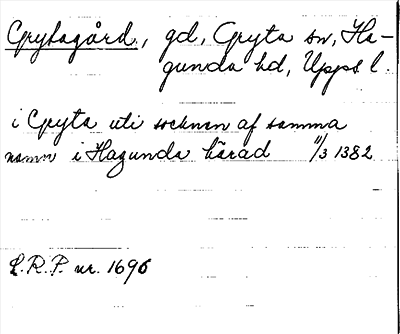 Grytagård, gd, Gryta sn, Ha-
gunda hd, Upps. l.
i Gryta uti socknen af samma
namn i Hagunda härad 11/3 1382
S.R.P. nr. 1696